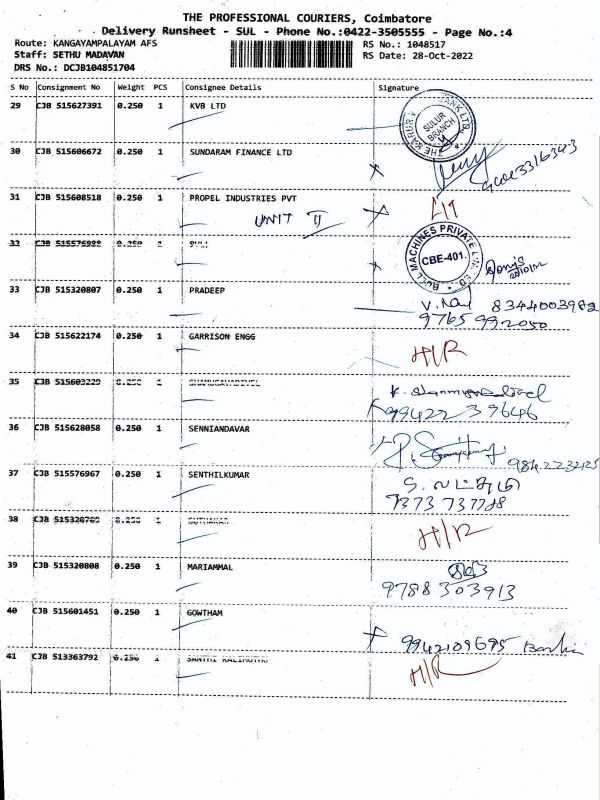 THE PROFESSIONAL COURIERS, Coimbatore
Delivery Runsheet - SUL - Phone No.:0422-3505555 - Page No.:4
Route: KANGAYAMPALAYAM AFS
RS No.: 1048517
Staff: SETHU MADAVAN
RS Date: 28-Oct-2022
DRS No.: DCJB104851704
S No Consignment No Weight PCS Consignee Details Signature
29 CJB 515627391 0.250 1 KVB LTD
SULUR BRANCH
30 CJB 515606672 0.250 1 SUNDARAM FINANCE LTD
31 CJB 515608518 0.250 1 PROPEL INDUSTRIES PVT
UNIT II
32 CJB 515576988 0.250 1 BULL
BULL MACHINES PRIVATE LIMITED
CBE-401.
33 CJB 515320807 0.250 1 PRADEEP
8344003982
9765 992050
34 CJB 515622174 0.250 1 GARRISON ENGG H/R
35 CJB 515603229 0.250 1 SHANUGAVADIVEL
99422 39646
36 CJB 515628058 0.250 1 SENNIANDAVAR
37 CJB 515576967 0.250 1 SENTHILKUMAR
7373 737788
38 CJB 515320789 0.250 1 SUTHAKAR H/R
39 CJB 515320808 0.250 1 MARIAMMAL
9788 303913
40 CJB 515601451 0.250 1 GOWTHAM 9942109695
41 CJB 513363792 0.250 1 SANTHI KALIMUTHU H/R